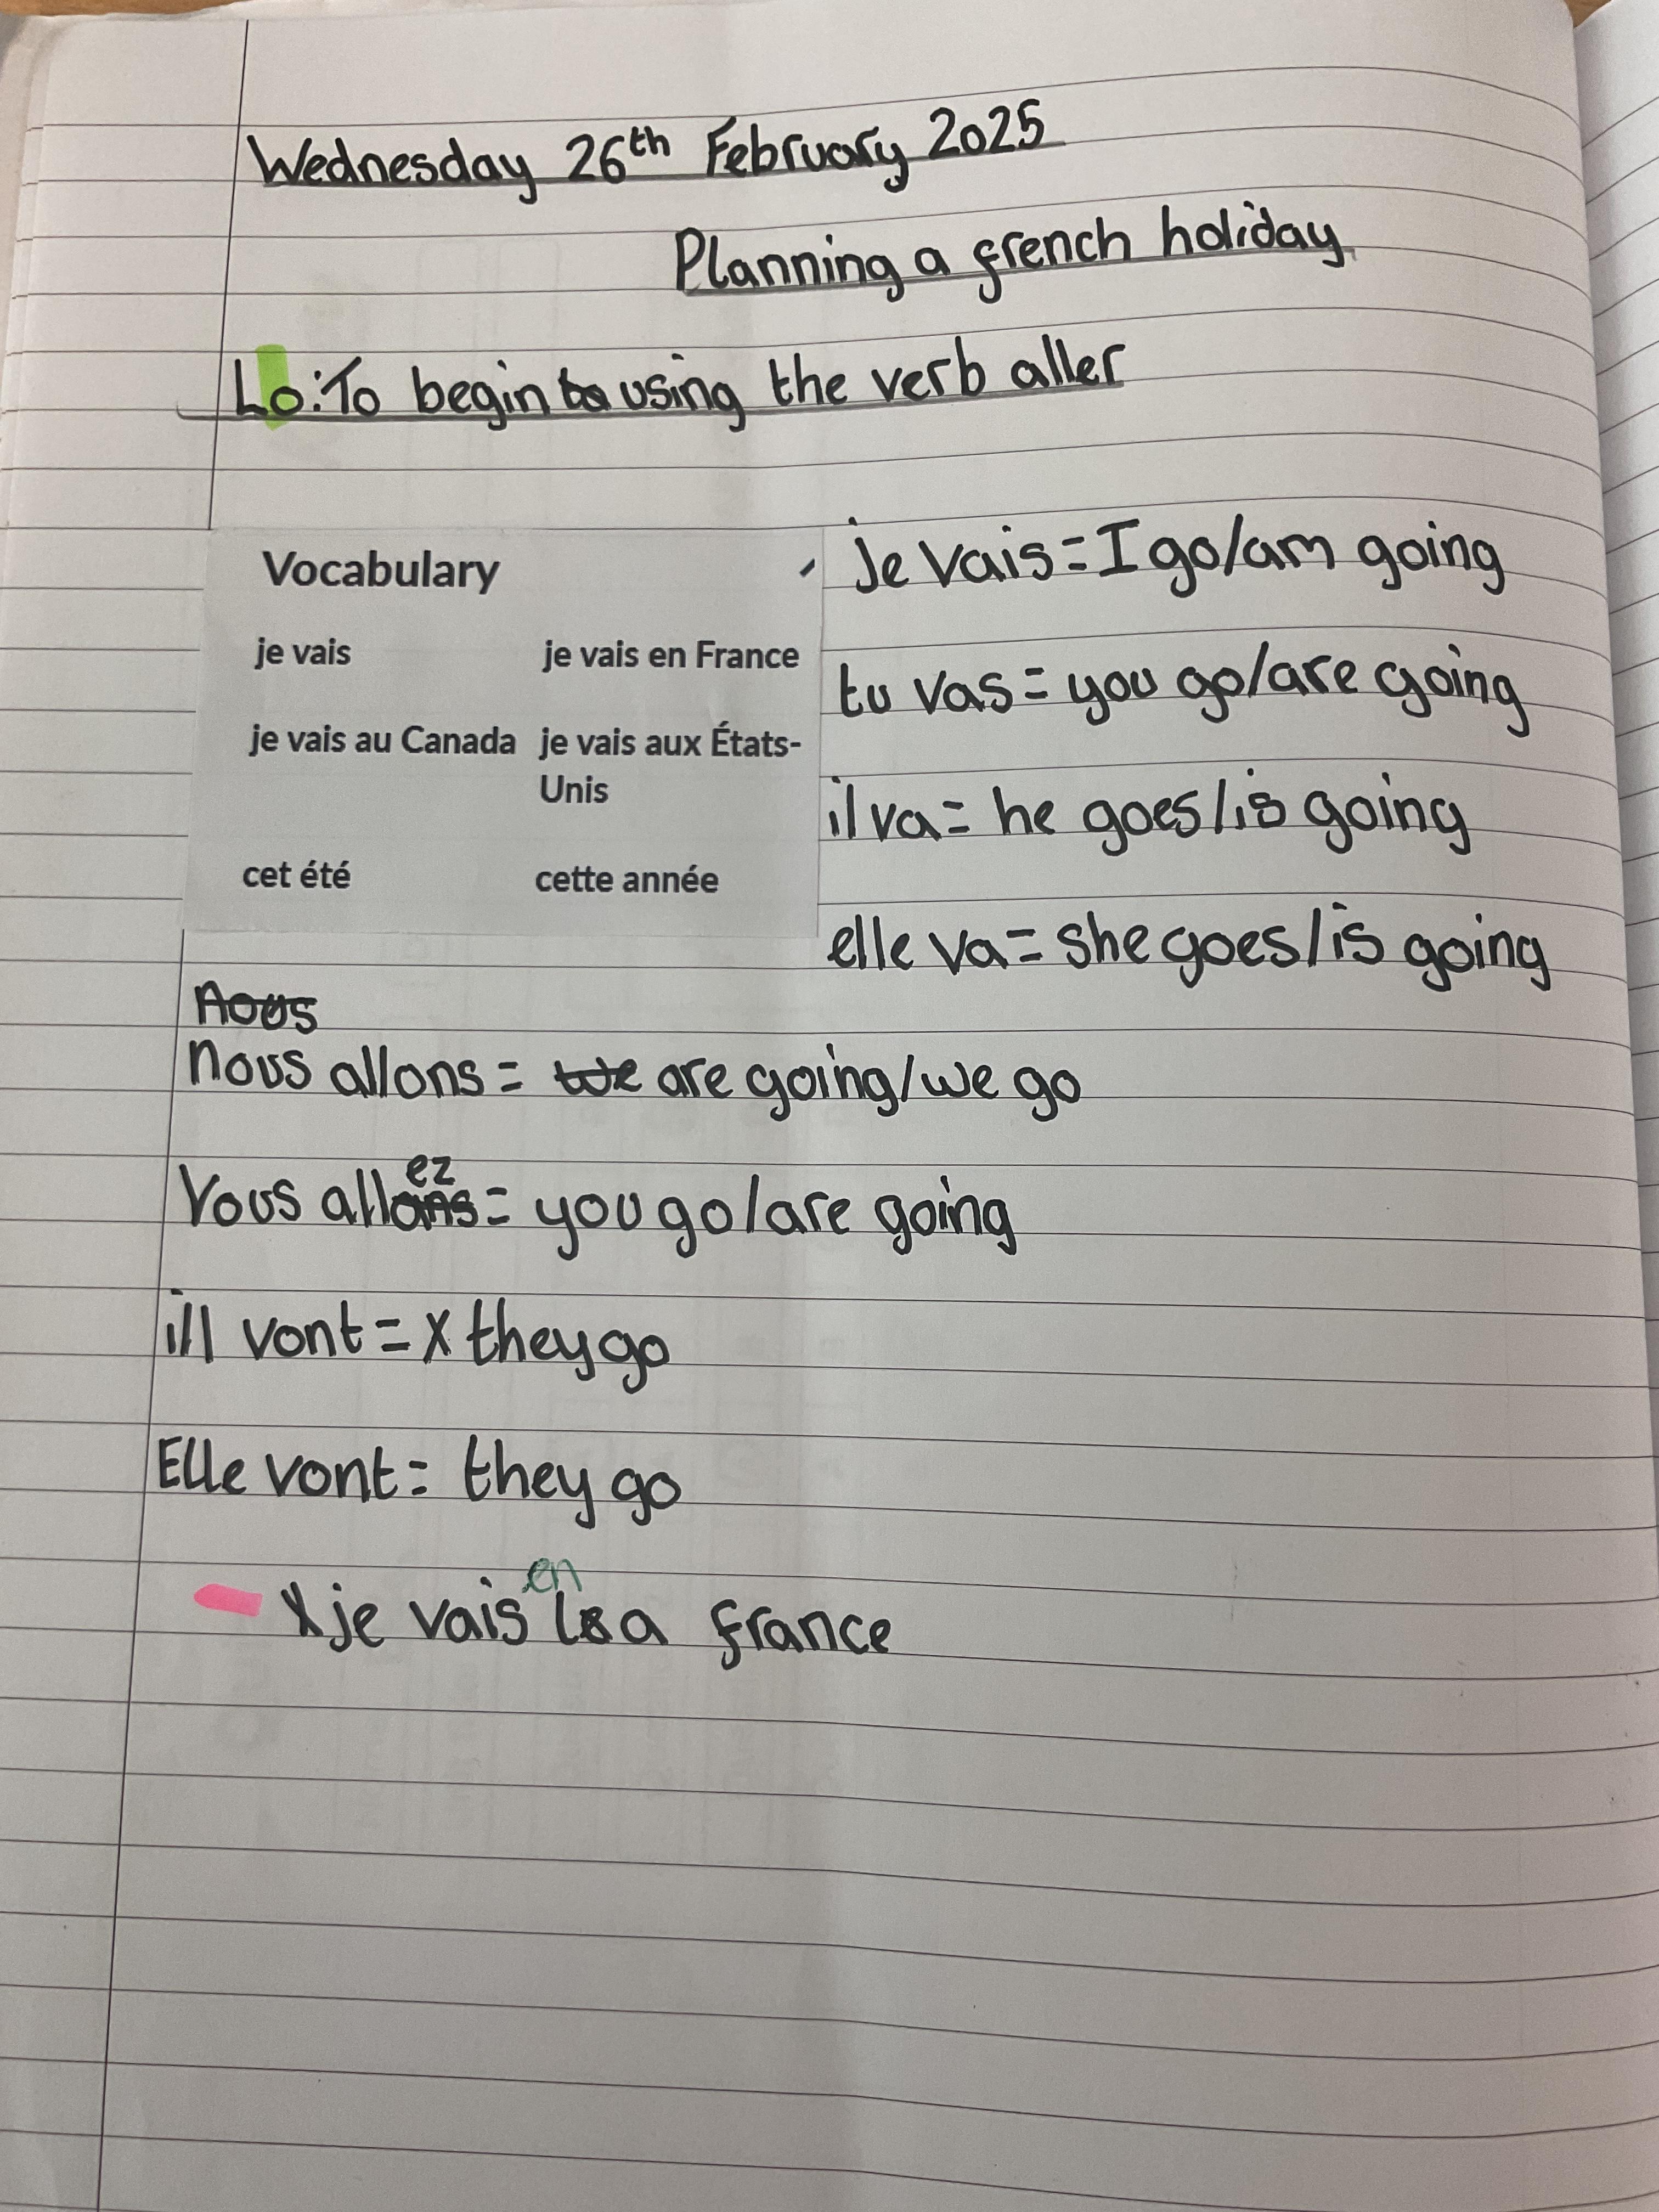 Wednesday 26th February 2025
Planning a french holiday
Lo: To begin to using the verb aller
Vocabulary
je vais je vais en France
je vais au Canada je vais aux États-
Unis
cet été cette année
je vais = I go/am going
tu vas = you go/are going
il va = he goes/is going
elle va = she goes/is going
Nous
nous allons = We are going/we go
ez
Vous allons = you go/are going
ill vont = x they go
Elle vont = they go
en
je vais la france